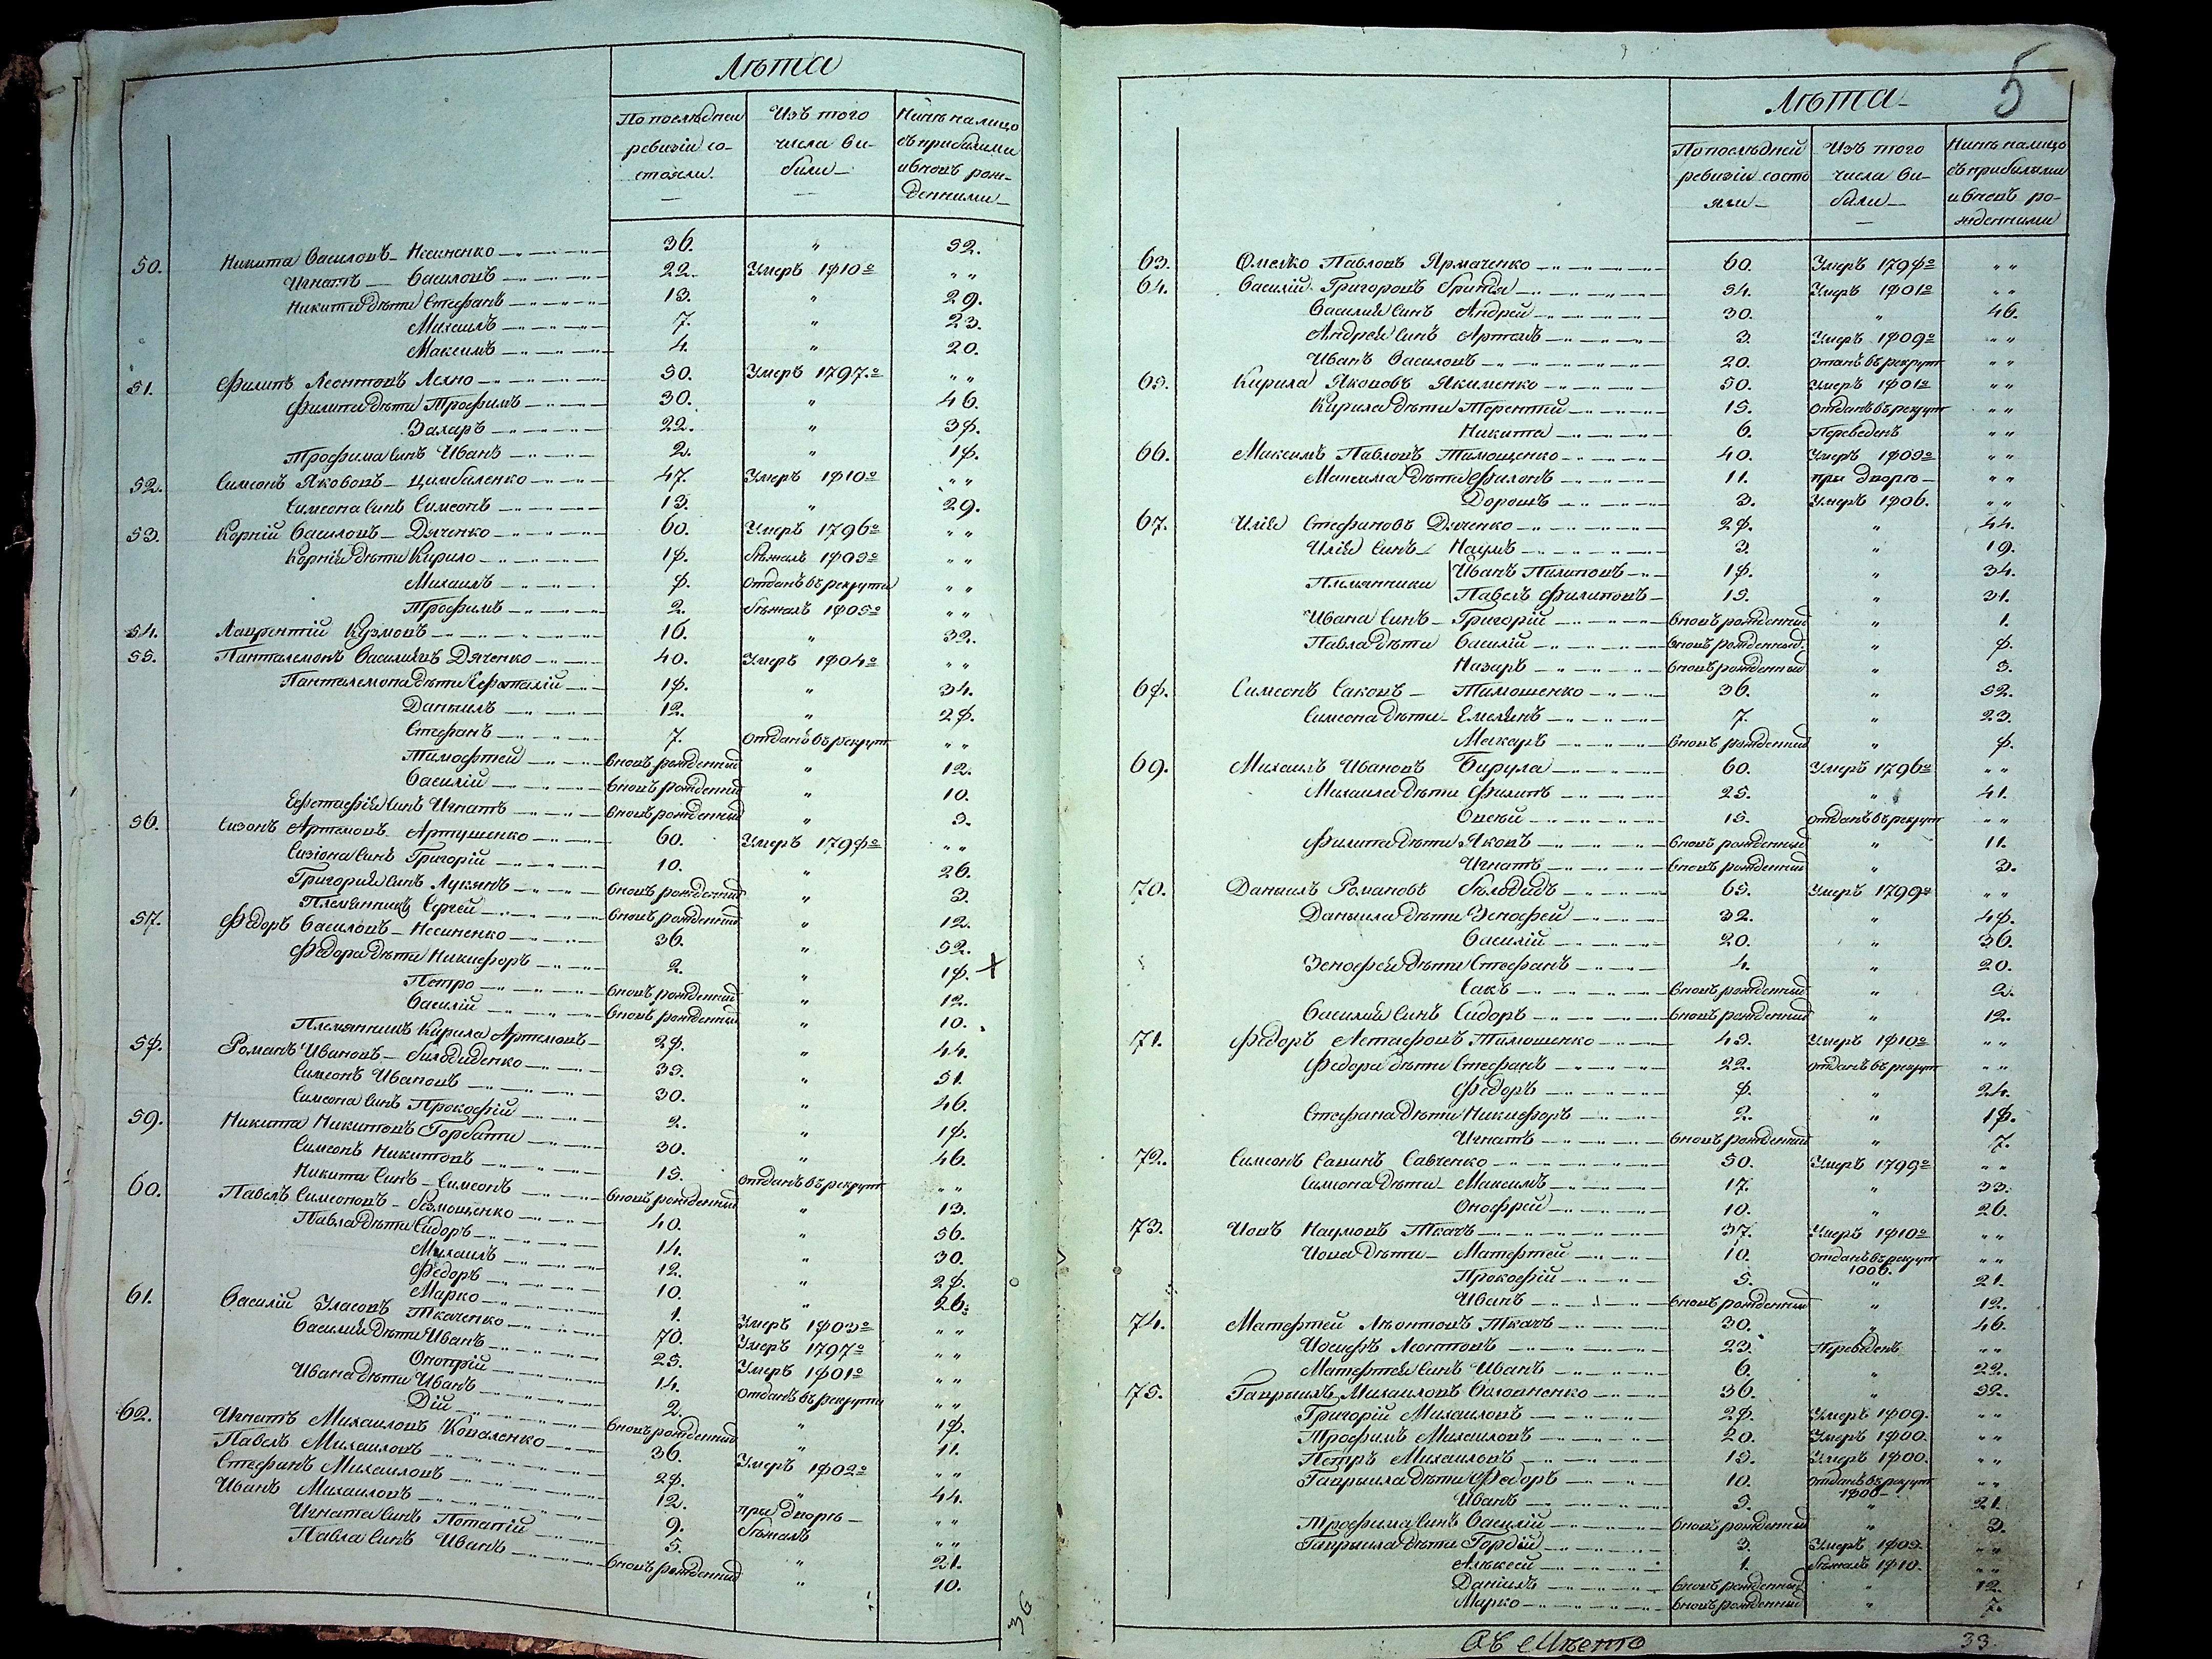 Лѣта
По последнеи ревизіи состояли
Изъ того числа выбыли
Нинѣ налицо съ прибилими и вновь рожденними
50. Никита Василовъ Несиненко 36. " 52.
Игнатъ Василовъ 22. Умеръ 1810го " "
Никити дѣти Стефанъ 13. " 29.
Михаилъ 7. " 23.
Максимъ 4. " 20.
51. Филипъ Леонтовъ Лехно 50. Умеръ 1797го " "
Филипа дѣти Трофимъ 30. " 46.
Захаръ 22. " 38.
Трофима синъ Иванъ 2. " 18.
52. Симеонъ Якововъ Цимбаленко 47. Умеръ 1810го " "
Симеона синъ Симеонъ 13. " 29.
53. Корній Василовъ Дяченко 60. Умеръ 1796го " "
Корнія дѣти Кирило 18. бѣжалъ 1805го " "
Михаилъ 8. отданъ въ рекрути " "
Трофимъ 2. бѣжалъ 1805го " "
54. Лаврентій Кузмовъ 16. " 32.
55. Панталемонъ Василиевъ Дяченко 40. Умеръ 1804го " "
Панталемона дѣти Ефстафій 18. " 34.
Данылъ 12. " 28.
Стефанъ 7. отданъ въ рекрут " "
Тимофтей вновъ рожденний " 12.
Василій вновъ рожденний " 10.
Ефстафія синъ Игнатъ вновъ рожденний " 5.
56. Сизонъ Артемовъ Артушенко 60. Умеръ 1798го " "
Сизіона синъ Григорій 10. " 26.
Григорія синъ Лукянъ вновъ рожденний " 3.
Племянникъ Сергей вновъ рожденний " 12.
57. Федоръ Василовъ Несиненко 36. " 52.
Федора дѣти Никифоръ 2. " 18. +
Петро вновъ рожденний " 12.
Василій вновъ рожденний " 10.
Племянникъ Кирила Артемовъ 28. " 44.
58. Романъ Ивановъ Билодиденко 35. " 51.
Симеонъ Ивановъ 30. " 46.
Симеона синъ Прокофій 2. " 18.
59. Никита Никитовъ Горбати 30. " 46.
Симеонъ Никитовъ 15. отданъ въ рекрут " "
Никити синъ Симеонъ вновъ рожденний " 13.
60. Павелъ Симеоновъ 40. " 56.
Павла дѣти Сидоръ 14. " 30.
Михаилъ 12. " 28.
Федоръ 10. " 26.
Марко 1. Умеръ 1803го " "
61. Василій Уласовъ Ткаченко 70. Умеръ 1797го " "
Василия дѣти Иванъ 25. Умеръ 1801го " "
Оноприй 14. отданъ въ рекрути " "
Ивана дѣти Иванъ 2. " 18.
Дій вновъ рожденний " 11.
62. Игнатъ Михаиловъ Коваленко 36. Умеръ 1802го " "
Павелъ Михаиловъ 28. " 44.
Стефанъ Михаиловъ 12. при дворѣ " "
Иванъ Михаиловъ 9. бѣжалъ " "
Игната синъ Потапій 5. " 21.
Павла синъ Иванъ вновъ рожденний " 10.
36
5
Лѣта
По последней ревизіи состояли
Изъ того числа выбыли
Нинѣ налицо съ прибилими и вновъ рожденними
63. Омелко Павловъ Ярмаченко 60. Умеръ 1798го " "
64. Василій Григоровъ 54. Умеръ 1801го " "
Василия синъ Андрей 30. " 46.
Андрея синъ Артемъ 3. Умеръ 1809го " "
Иванъ Василовъ 20. отданъ въ рекрут " "
65. Кирила Якововъ Якименко 50. Умеръ 1801го " "
Кирила дѣти Терентий 15. отданъ въ рекрут " "
Никита 6. Переведенъ " "
66. Максимъ Павловъ Тимошенко 40. Умеръ 1805го " "
Максима дѣти Филонъ 11. при дворѣ " "
Дорошъ 3. Умеръ 1806. " "
67. Илія Стефановъ Дяченко 28. " 44.
Илія синъ Наумъ 3. " 19.
Племянники Иванъ Пилиповъ 18. " 34.
Павелъ Филиповъ 15. " 31.
Ивана синъ Григорій вновъ рожденний " 1.
Павла дѣти Василій вновъ рожденный " 8.
Назаръ вновъ рожденний " 3.
68. Симеонъ Саковъ Тимошенко 36. " 52.
Симеона дѣти Емелянъ 7. " 23.
Макаръ вновъ рожденний " 8.
69. Михаилъ Ивановъ Бирула 60. Умеръ 1796го " "
Михаила дѣти Филипъ 25. " 41.
Овсѣй 15. отданъ въ рекрут " "
Филипа дѣти Яковъ вновъ рожденний " 11.
Игнатъ вновъ рожденний " 3.
70. Данилъ Романовъ Бѣлодидъ 65. Умеръ 1799го " "
Данила дѣти Зенофей 32. " 48.
Василій 20. " 36.
Зенофея дѣти Стефанъ 4. " 20.
Сакъ вновъ рожденний " 2.
Василия синъ Сидоръ вновъ рожденний " 12.
71. Федоръ Астафовъ Тимошенко 45. Умеръ 1810го " "
Федора дѣти Стефанъ 22. отданъ въ рекрут " "
Федоръ 8. " 24.
Стефана дѣти Никифоръ 2. " 18.
Игнатъ вновъ рожденний " 7.
72. Симеонъ Савинъ Савченко 50. Умеръ 1799го " "
Симеона дѣти Максимъ 17. " 33.
Онофрей 10. " 26.
73. Иовъ Наумовъ Ткачъ 37. Умеръ 1810го " "
Иова дѣти Матфтей 10. отданъ въ рекрут 1806. " "
Прокофій 5. " 21.
Иванъ вновъ рожденний " 12.
74. Матфтей Лѣонтовъ Ткачъ 30. " 46.
Иосифъ Леонтовъ 23. Переведенъ " "
Матфтея синъ Иванъ 6. " 22.
75. Гаврыилъ Михаиловъ 36. " 52.
Григорій Михаиловъ 28. Умеръ 1809. " "
Трофимъ Михаиловъ 20. Умеръ 1800. " "
Петръ Михаиловъ 15. Умеръ 1800. " "
Гаврыила дѣти Федоръ 10. отданъ въ рекрут 1800 " "
Иванъ 5. " 21.
Трофима синъ Василій вновъ рожденний " 3.
Гаврыила дѣти Гордій 3. Умеръ 1805. " "
Алѣксей 1. бѣжалъ 1810. " "
Даніилъ вновъ рожденний " 12.
Марко вновъ рожденний " 7.
33.